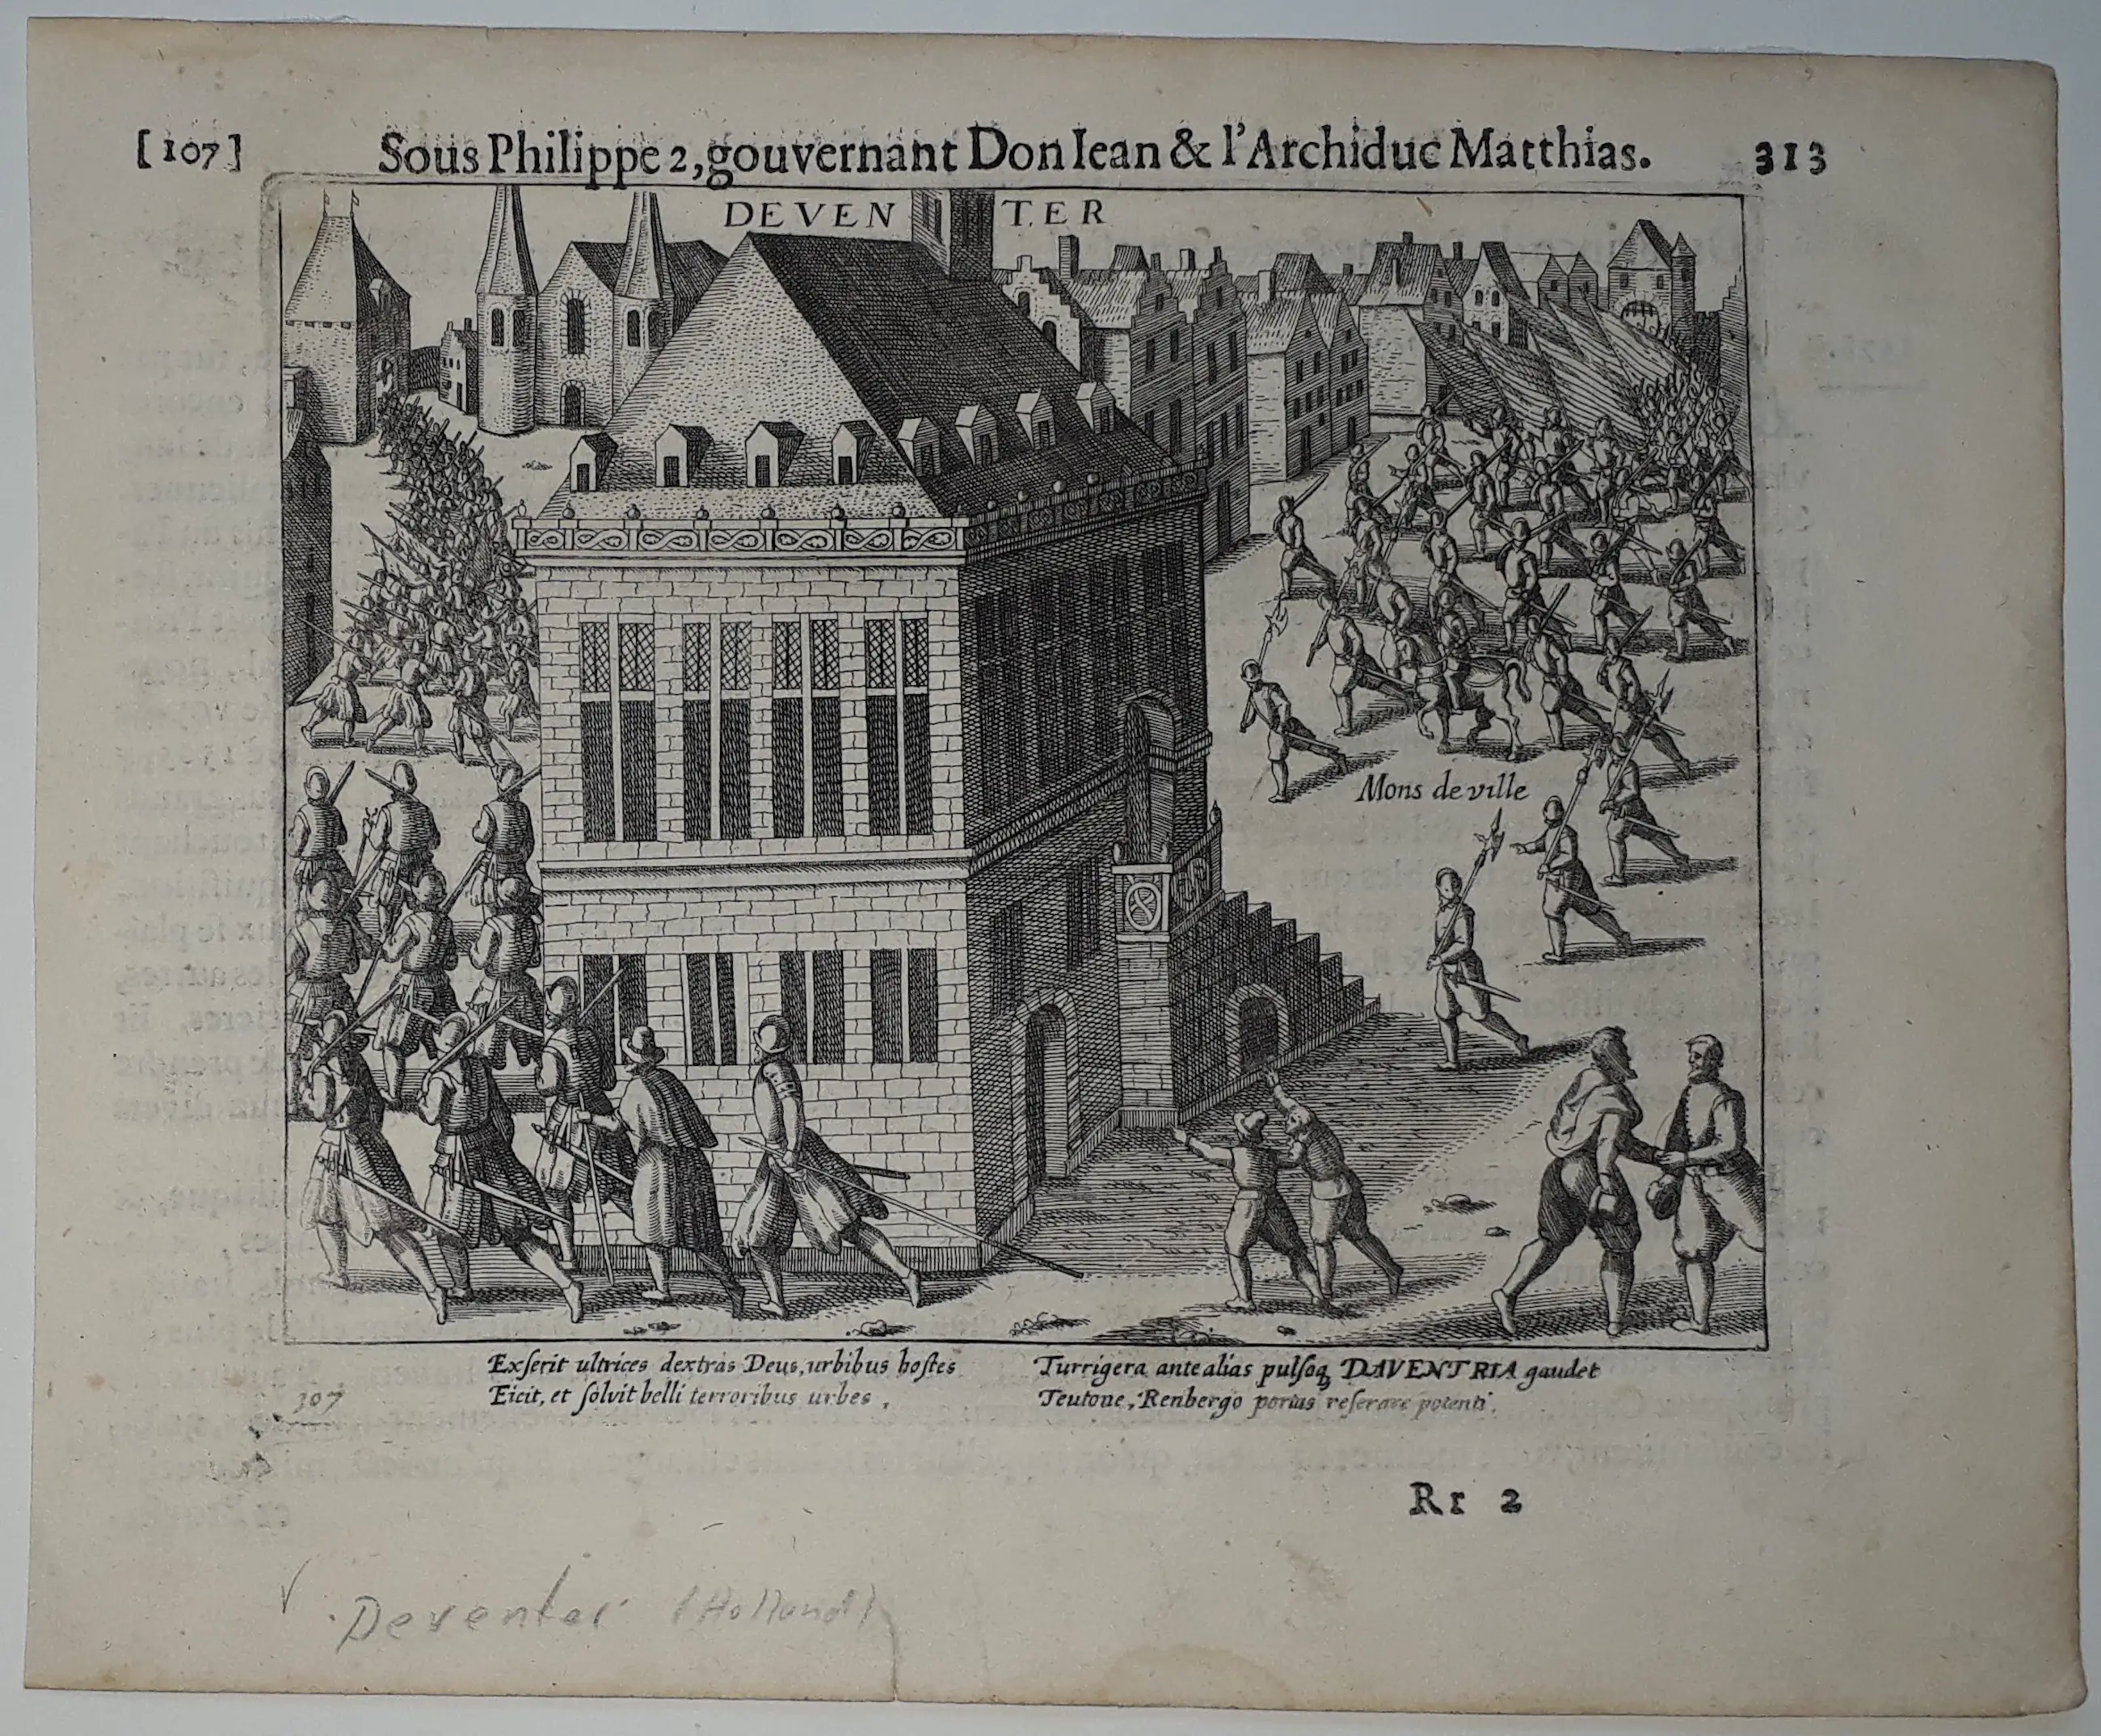 [107] Sous Philippe 2, gouvernant Don Iean & l'Archiduc Matthias. 313
DEVENTER
Mons de ville
Exſerit ultrices dextras Deus, urbibus hoſtes
Eicit, et ſolvit belli terroribus urbes,
Turrigera ante alias pulſoq, DAVENTRIA gaudet
Teutone, Renbergo portas reſerare potenti.
307
Rr 2
Deventer (Holland)